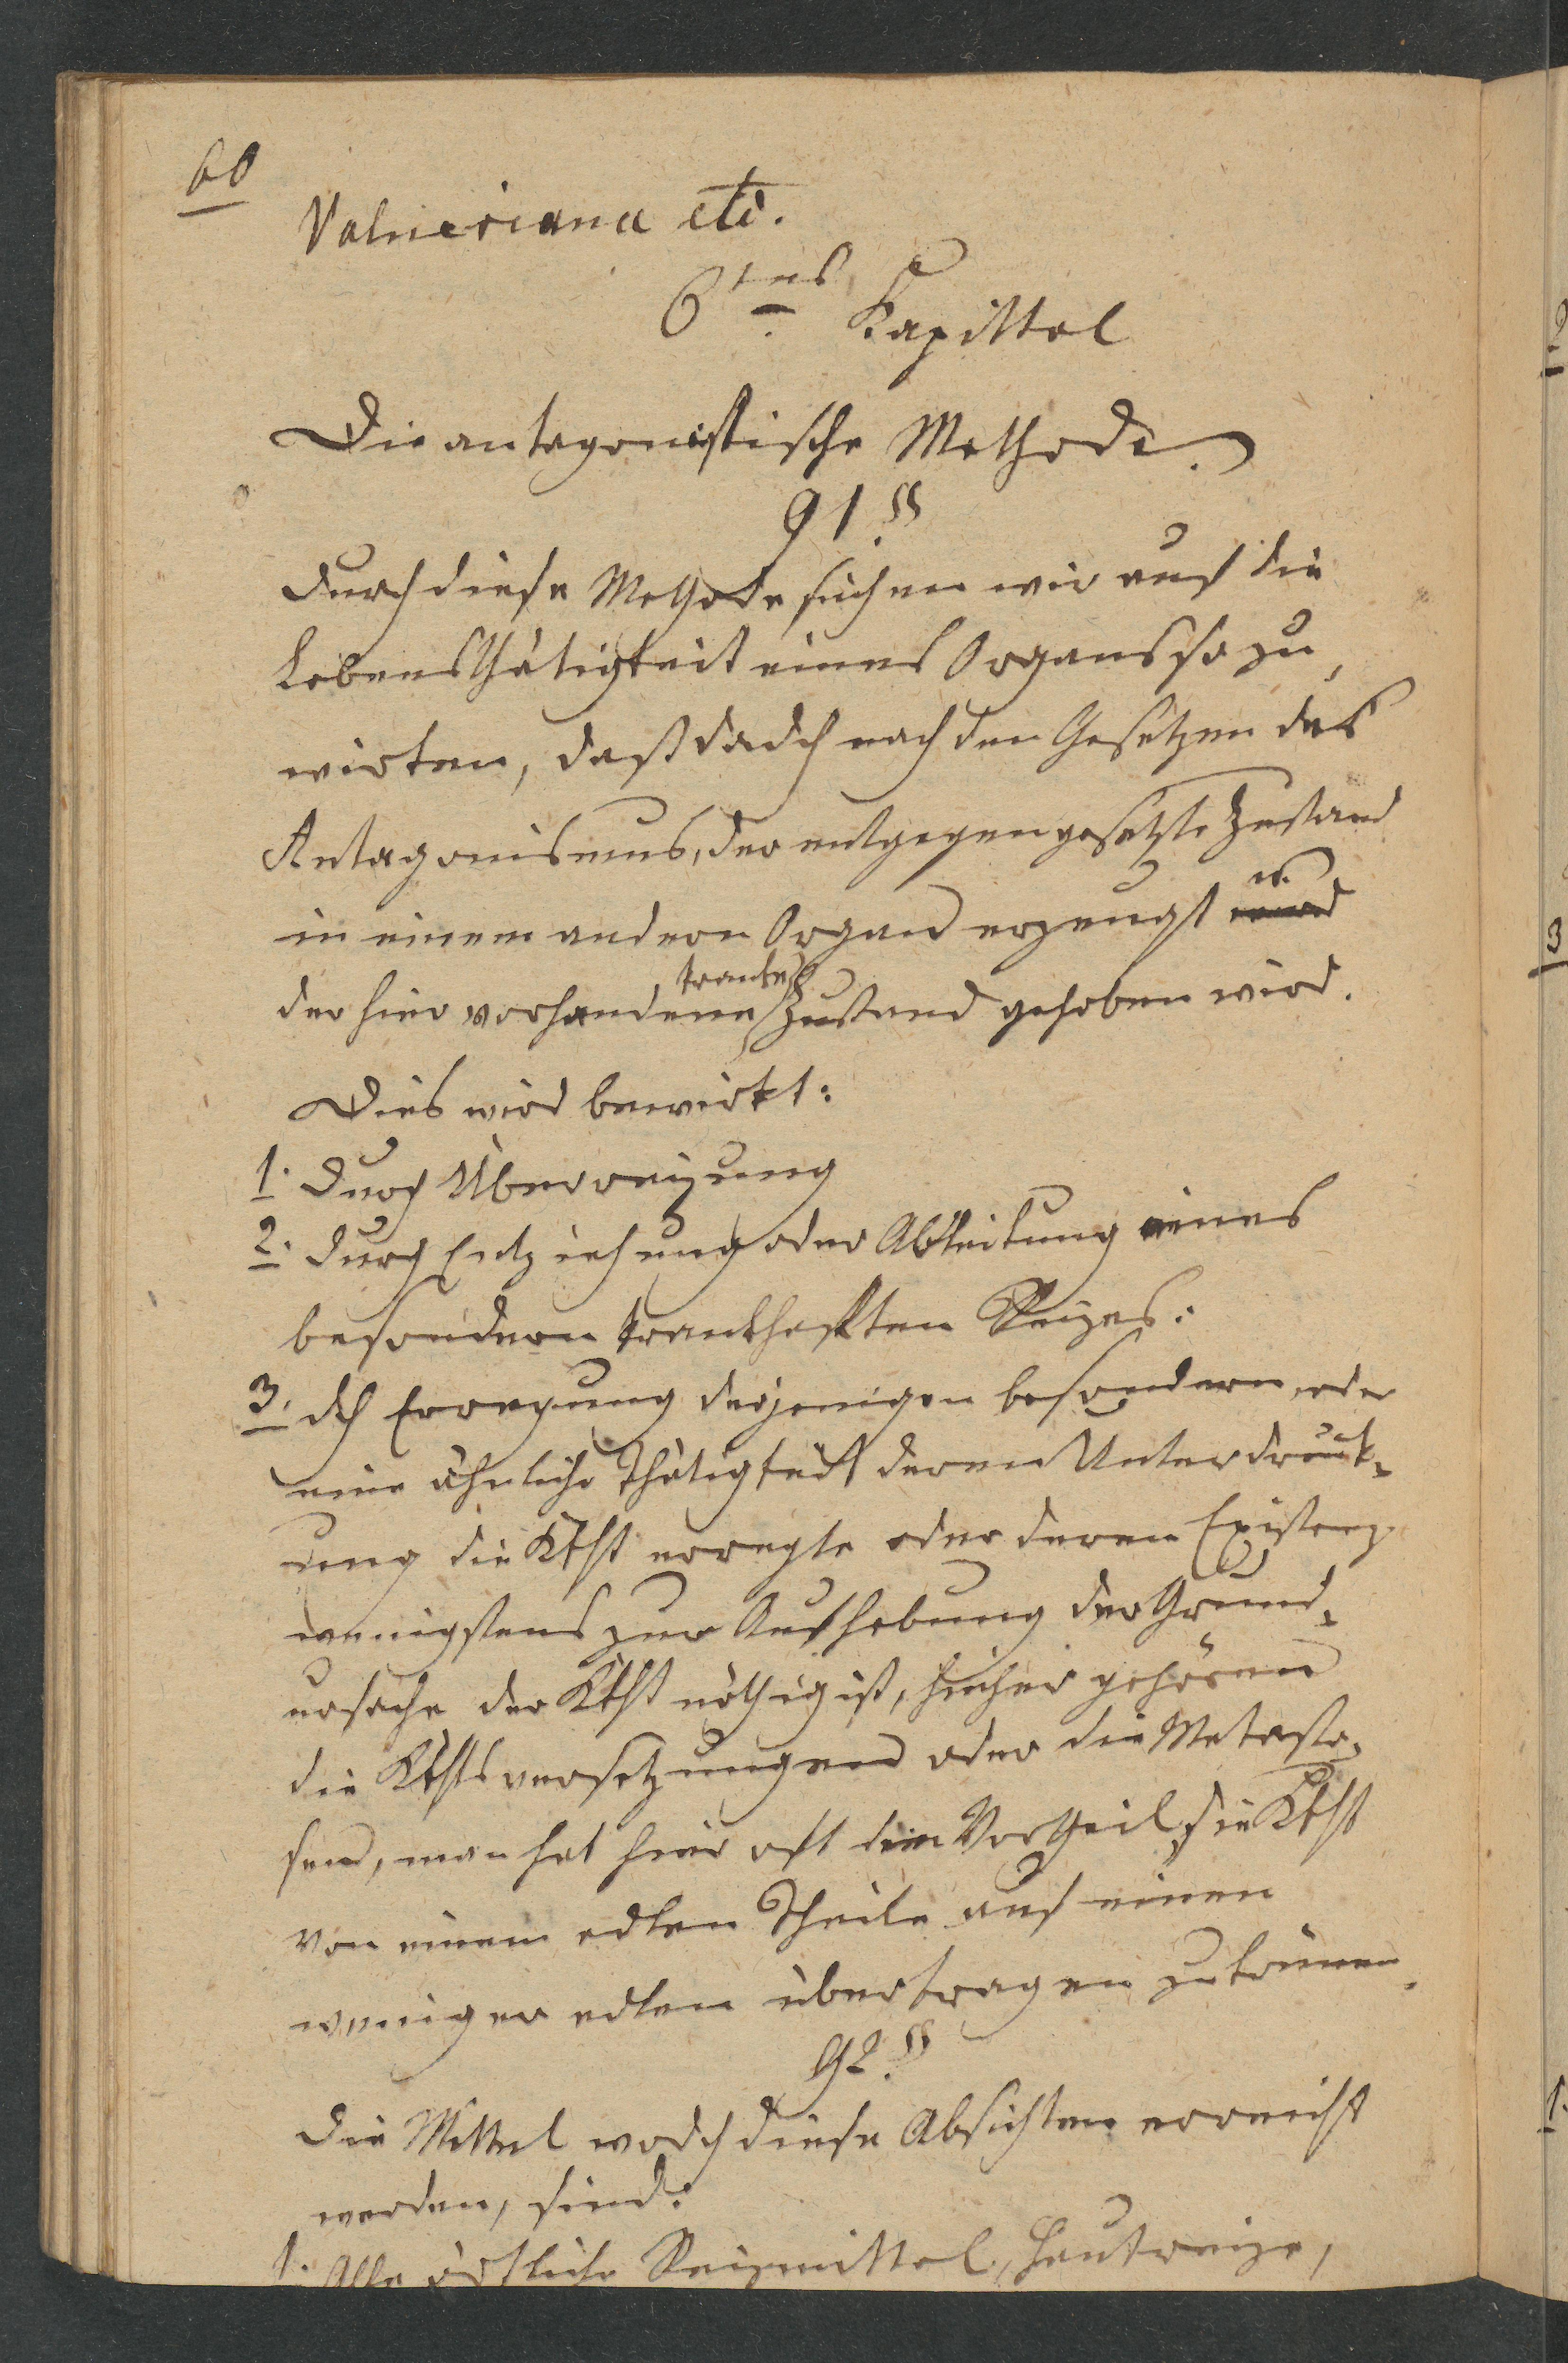 60
Valneriana etc.
6tes Kapittel
Die antagonistische Methode.
91.§
Durch diese Methode suchen wir auf die
Lebensthätigkeit eines Organs so zu
wirken, daß dadch nach den Gesetzen des
Antagonismus, der entgegengesetzte Zustand
in einem andern Organ erzeugt u.
der hier vorhandene kranke Zustand gehoben wird.
Dies wird bewirkt:
1. Durch Überreizung
2. Durch Entziehung oder Ableitung eines
besondern krankhaften Reizes:
3. dch Erregung derjenigen besondern oder
eine ähnliche Thätigkeit deren Unterdrück-
ung die Kkht erregte oder deren Existenz
wenigstens zur Aufhebung der Grund-
ursache der Kkht nöthig ist, hieher gehören
die Kkhtsversetzungen oder die Metasta-
sen, man hat hier oft den Vortheil die Kkht
von einem edlen Theile auf einen
weniger edlen übertragen zu können.
92.§
Die Mittel wodch diese Absichten erreicht
werden, sind:
1. Alle örtliche Reizmittel, Hautreize,
3
1.